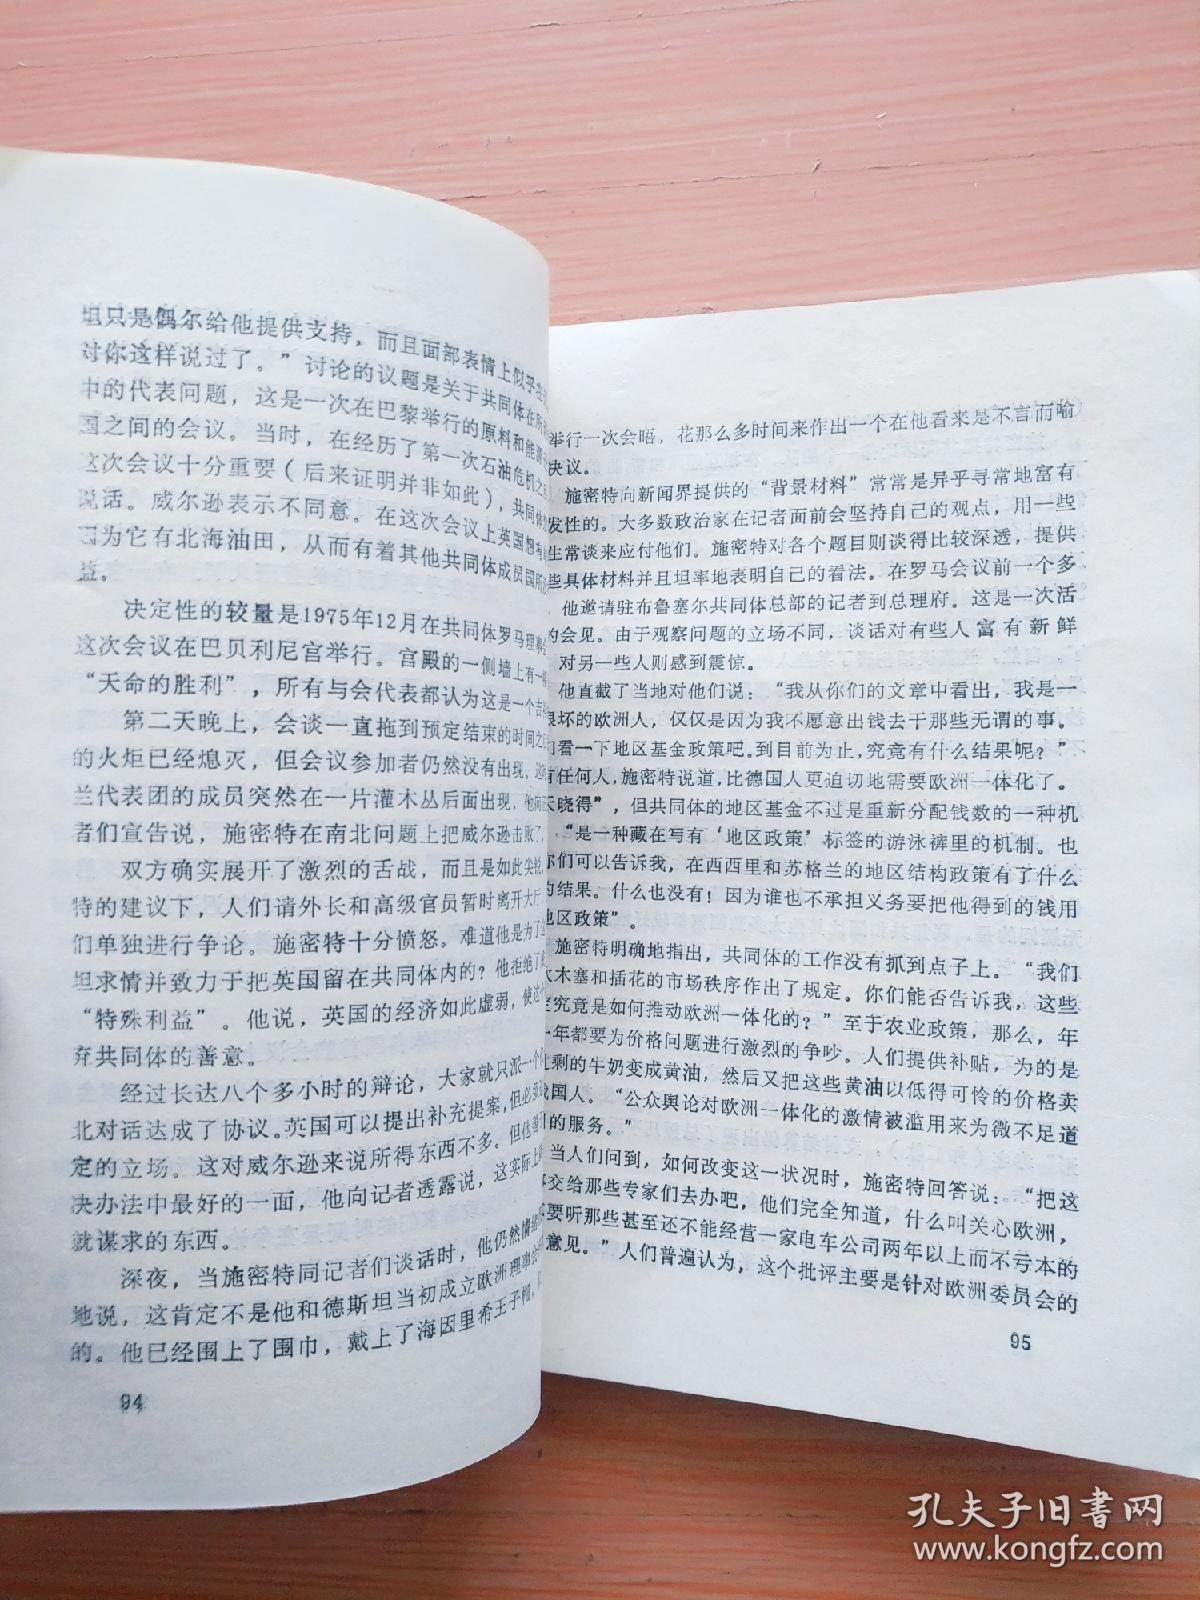 只是偶尔给他提供支持，而且面部表情上似乎在
对你这样说过了。”讨论的议题是关于共同体在所
中的代表问题，这是一次在巴黎举行的原料和能源
国之间的会议。当时，在经历了第一次石油危机之
这次会议十分重要（后来证明并非如此），共同体
说话。威尔逊表示不同意。在这次会议上英国想
因为它有北海油田，从而有着其他共同体成员国所
益。
决定性的较量是1975年12月在共同体罗马理事会
这次会议在巴贝利尼宫举行。宫殿的一侧墙上有一
“天命的胜利”，所有与会代表都认为这是一个吉
第二天晚上，会谈一直拖到预定结束的时间之
的火炬已经熄灭，但会议参加者仍然没有出现，
兰代表团的成员突然在一片灌木丛后面出现，他向
者们宣告说，施密特在南北问题上把威尔逊击败了，
双方确实展开了激烈的舌战，而且是如此尖锐，
特的建议下，人们请外长和高级官员暂时离开大厅，
们单独进行争论。施密特十分愤怒。难道他是为了
坦求情并致力于把英国留在共同体内的？他拒绝了
“特殊利益”。他说，英国的经济如此虚弱，使这个
弃共同体的善意。
经过长达八个多小时的辩论，大家就只派一个
北对话达成了协议。英国可以提出补充提案，但必须
定的立场。这对威尔逊来说所得东西不多。但他善于
决办法中最好的一面，他向记者透露说，这实际上
就谋求的东西。
深夜，当施密特同记者们谈话时，他仍然情绪
地说，这肯定不是他和德斯坦当初成立欧洲理事会
的。他已经围上了围巾，戴上了海因里希王子帽，
94
举行一次会晤，花那么多时间来作出一个在他看来是不言而喻
决议。
施密特向新闻界提供的“背景材料”常常是异乎寻常地富有
发性的。大多数政治家在记者面前会坚持自己的观点，用一些
生常谈来应付他们。施密特对各个题目则谈得比较深透，提供
些具体材料并且坦率地表明自己的看法。在罗马会议前一个多
，他邀请驻布鲁塞尔共同体总部的记者到总理府。这是一次活
的会见。由于观察问题的立场不同，谈话对有些人富有新鲜
，对另一些人则感到震惊。
他直截了当地对他们说：“我从你们的文章中看出，我是一
很坏的欧洲人，仅仅是因为我不愿意出钱去干那些无谓的事。
们看一下地区基金政策吧。到目前为止，究竟有什么结果呢？”
有任何人，施密特说道，比德国人更迫切地需要欧洲一体化了。
天晓得”，但共同体的地区基金不过是重新分配钱数的一种机
，“是一种藏在写有‘地区政策’标签的游泳裤里的机制。也
你们可以告诉我，在西西里和苏格兰的地区结构政策有了什么
的结果。什么也没有！因为谁也不承担义务要把他得到的钱用
地区政策”。
施密特明确地指出，共同体的工作没有抓到点子上。“我们
木塞和插花的市场秩序作出了规定。你们能否告诉我，这些
究竟是如何推动欧洲一体化的？”至于农业政策，那么，年
一年都要为价格问题进行激烈的争吵。人们提供补贴，为的是
剩的牛奶变成黄油，然后又把这些黄油以低得可怜的价格卖
国人。“公众舆论对欧洲一体化的激情被滥用来为微不足道
的服务。”
当人们问到，如何改变这一状况时，施密特回答说：“把这
交给那些专家们去办吧，他们完全知道，什么叫关心欧洲，
要听那些甚至还不能经营一家电车公司两年以上而不亏本的
意见。”人们普遍认为，这个批评主要是针对欧洲委员会的
95
孔夫子旧书网
www.kongfz.com